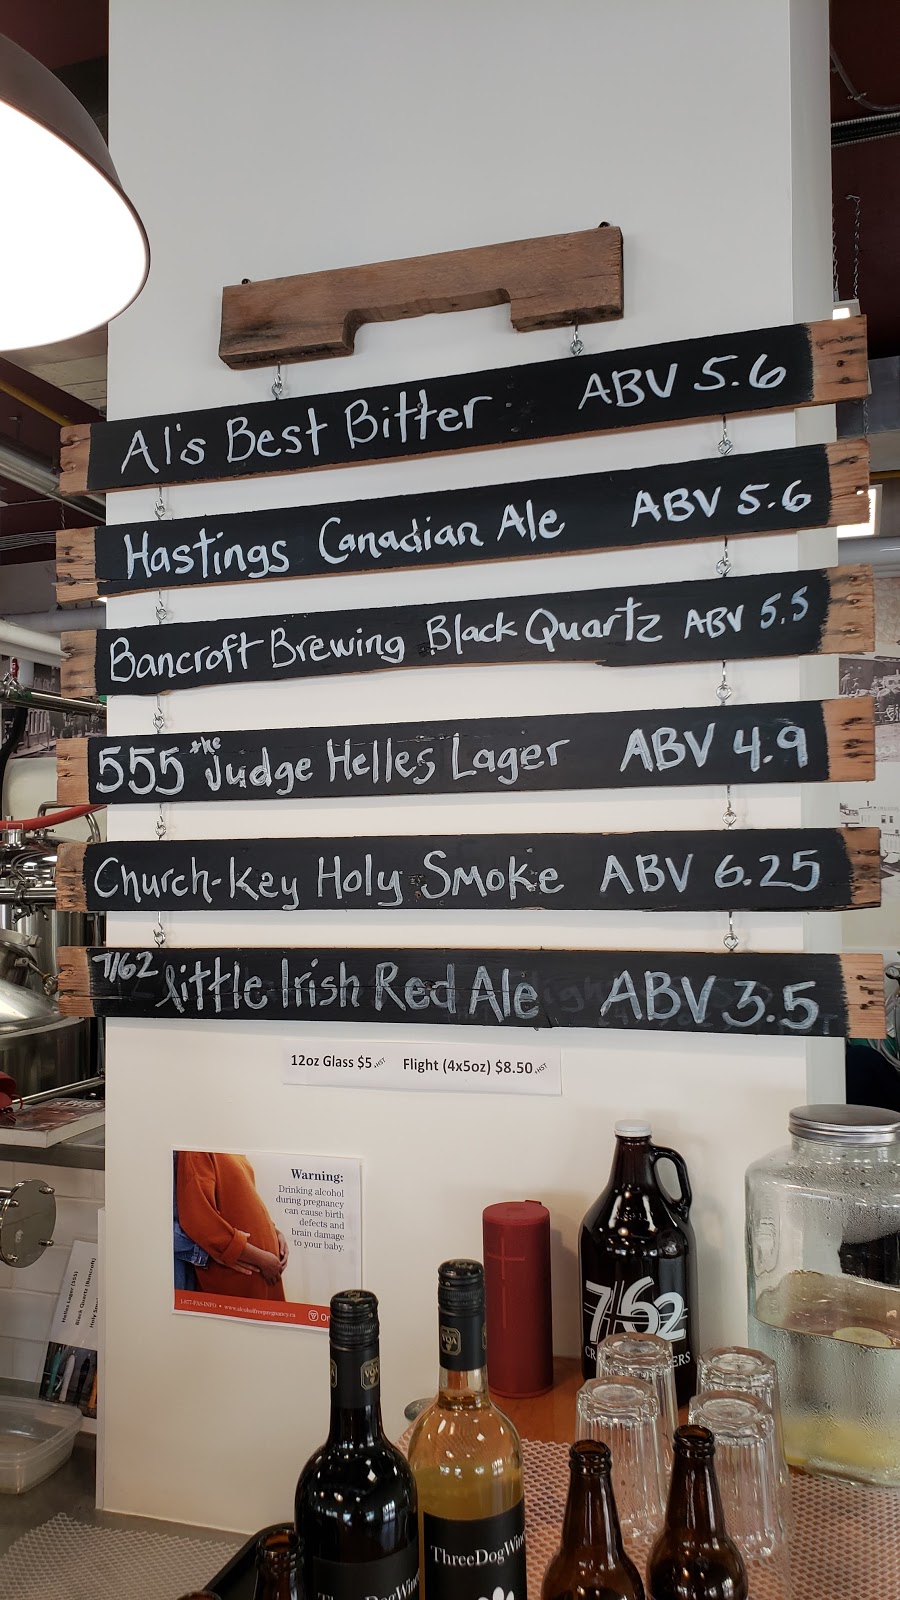 Al's Best Bitter ABV 5.6
Hastings Canadian Ale ABV 5.6
Bancroft Brewing Black Quartz ABV 5.5
555 the Judge Helles Lager ABV 4.9
Church-Key Holy Smoke ABV 6.25
7/62 little Irish Red Ale ABV 3.5
12oz Glass $5 +HST Flight (4x5oz) $8.50 +HST
Warning:
Drinking alcohol
during pregnancy
can cause birth
defects and
brain damage
to your baby.
1-877-FAS-INFO • www.alcoholfreepregnancy.ca
Helles Lager (555)
Black Quartz (Bancroft)
Holy
7/62
VQA
VQA
ThreeDogWine
ThreeDogWine